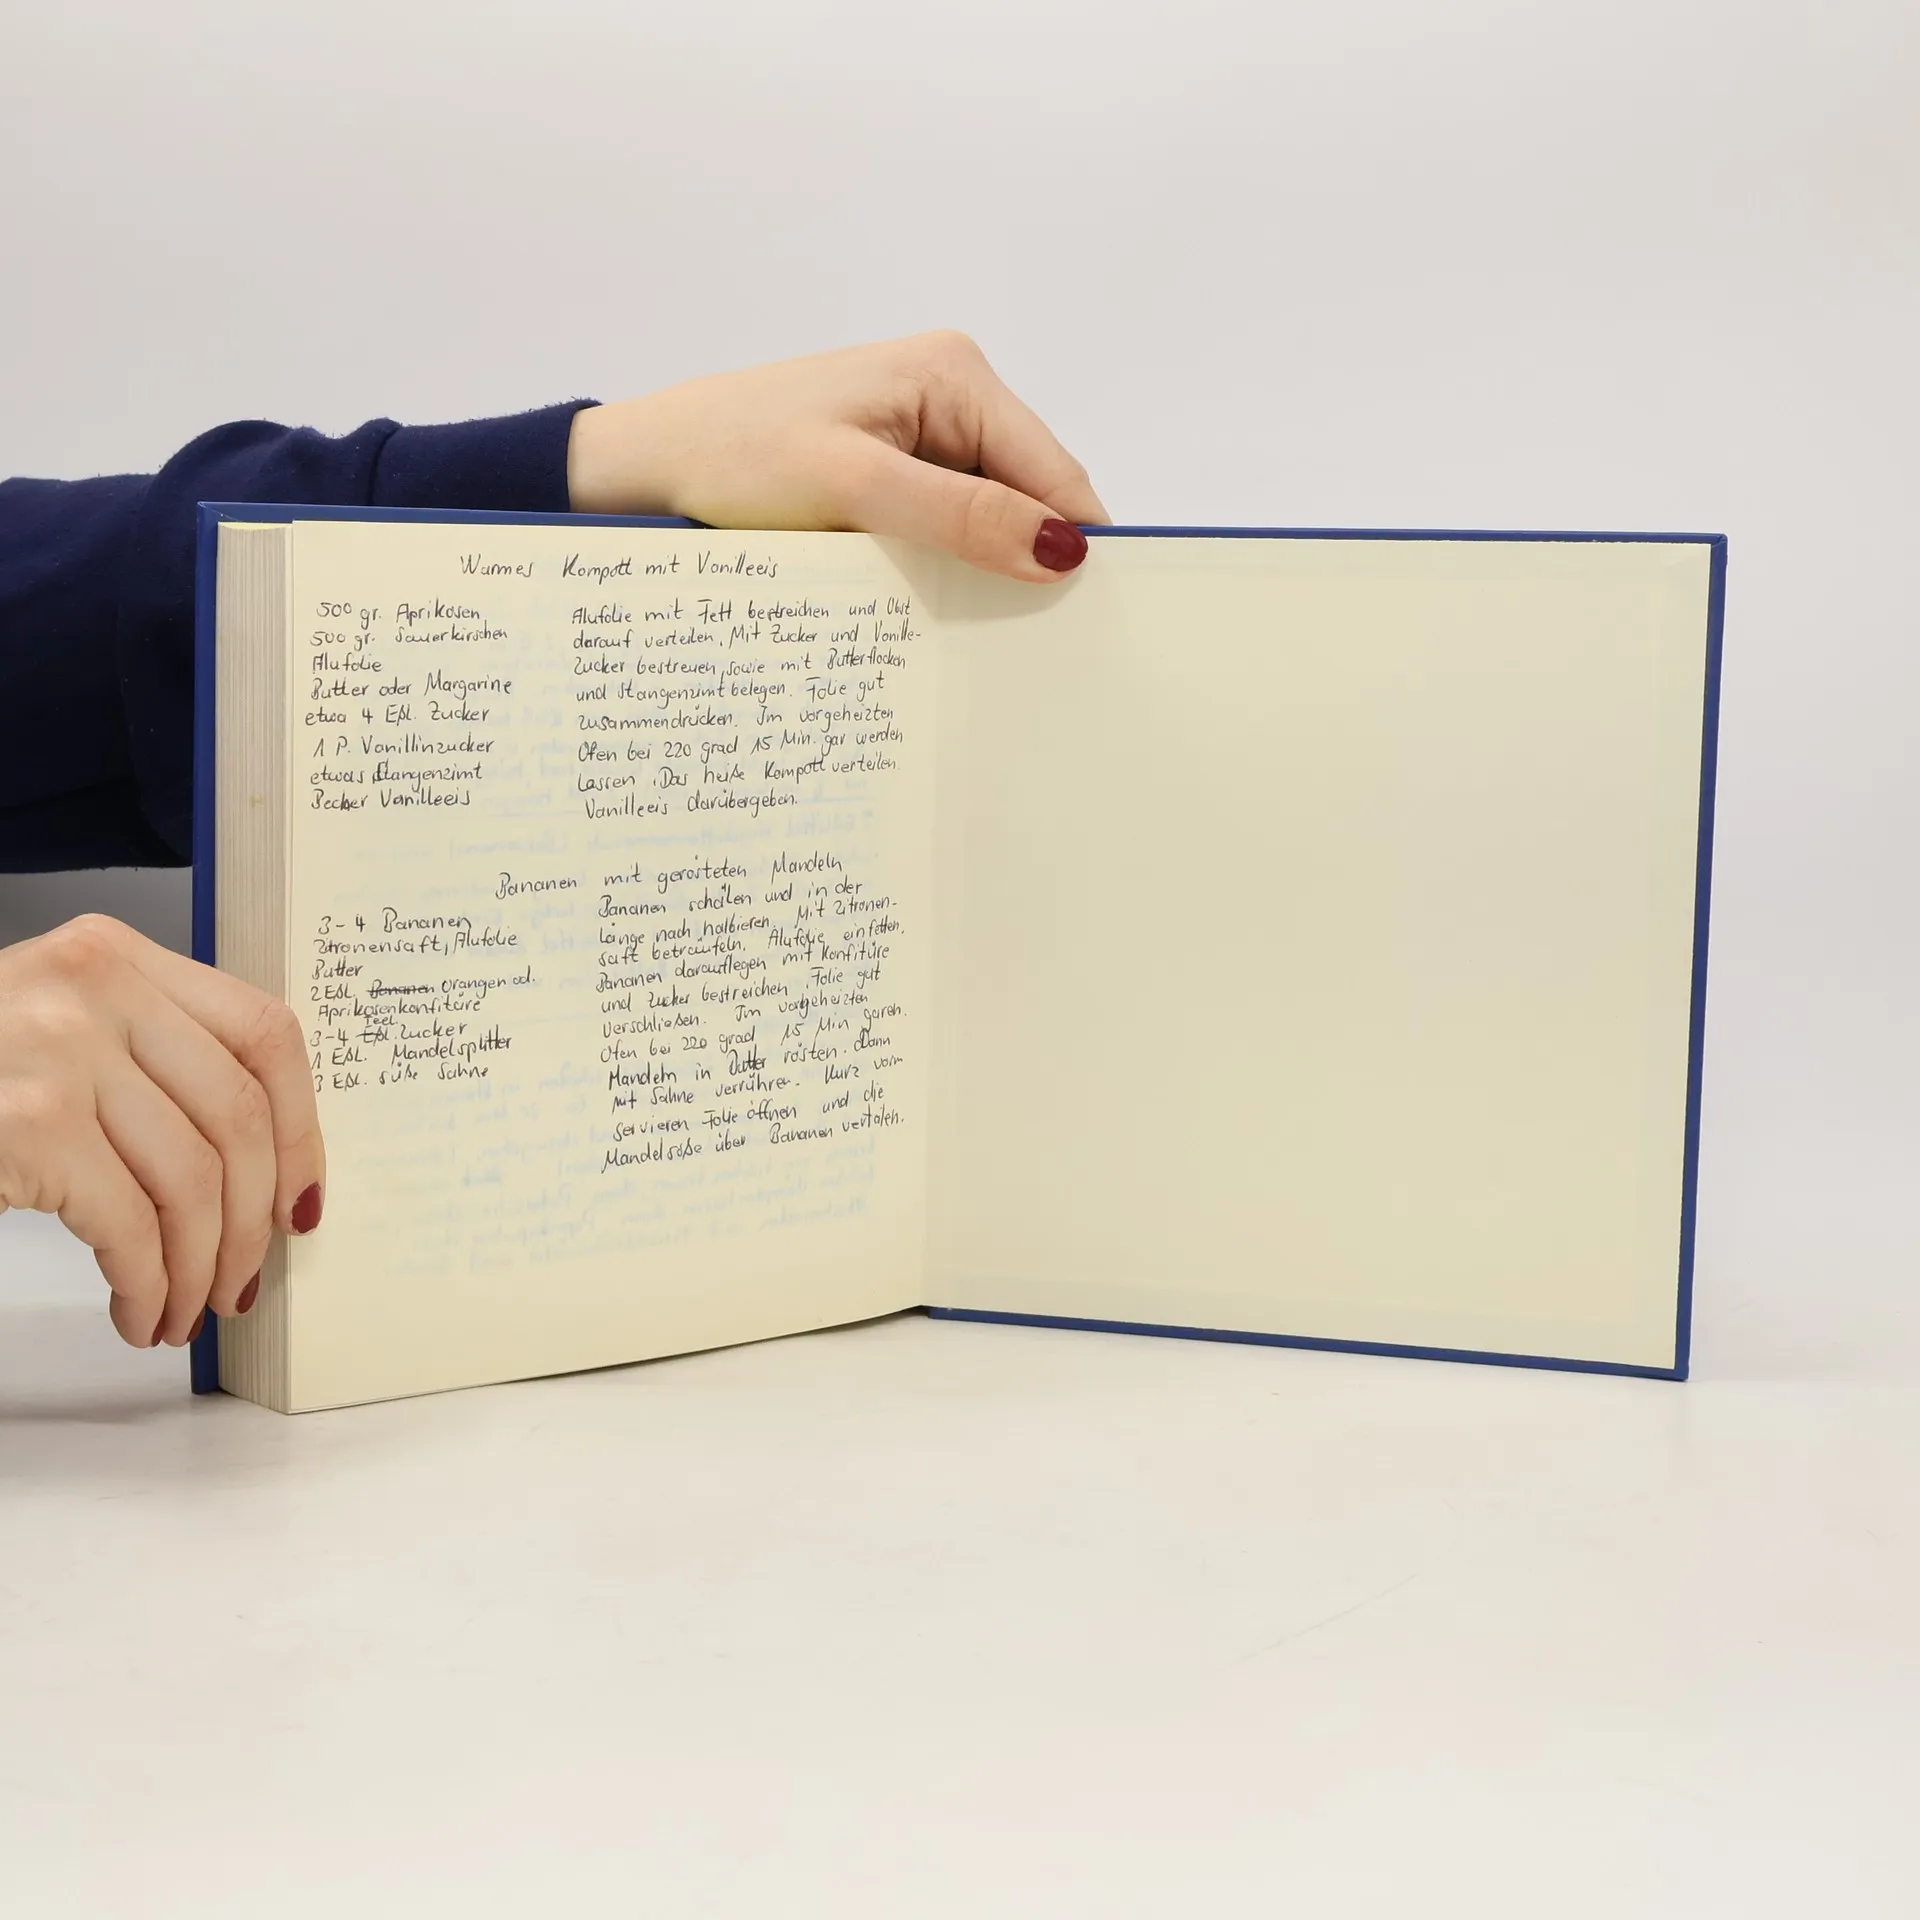 Warmes Kompott mit Vanilleeis
500 gr. Aprikosen
500 gr. Sauerkirschen
Alufolie
Butter oder Margarine
etwa 4 Eßl. Zucker
1 P. Vanillinzucker
etwas Stangenzimt
Becher Vanilleeis
Alufolie mit Fett bestreichen und Obst
darauf verteilen. Mit Zucker und Vanille-
zucker bestreuen, sowie mit Butterflocken
und Stangenzimt belegen. Folie gut
zusammendrücken. Im vorgeheizten
Ofen bei 220 grad 15 Min. gar werden
lassen. Das heiße Kompott verteilen.
Vanilleeis darübergeben.
Bananen mit gerösteten Mandeln
3-4 Bananen
Zitronensaft, Alufolie
Butter
2 Eßl. Bananen Orangen od.
Aprikosenkonfitüre
Teel
3-4 Eßl. Zucker
1 Eßl. Mandelsplitter
3 Eßl. süße Sahne
Bananen schälen und in der
Länge nach halbieren. Mit Zitronen-
saft beträufeln. Alufolie einfetten.
Bananen darauflegen mit Konfitüre
und Zucker bestreichen. Folie gut
verschließen. Im vorgeheizten
Ofen bei 220 grad 15 Min garen.
Mandeln in Butter rösten. Dann
mit Sahne verrühren. Kurz vorm
servieren Folie öffnen und die
Mandelsoße über Bananen verteilen.